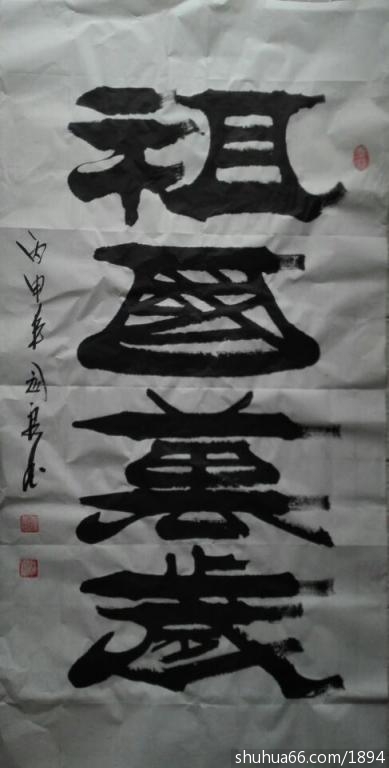 祖國萬歲
丙申年國良書
shuhua66.com/1894